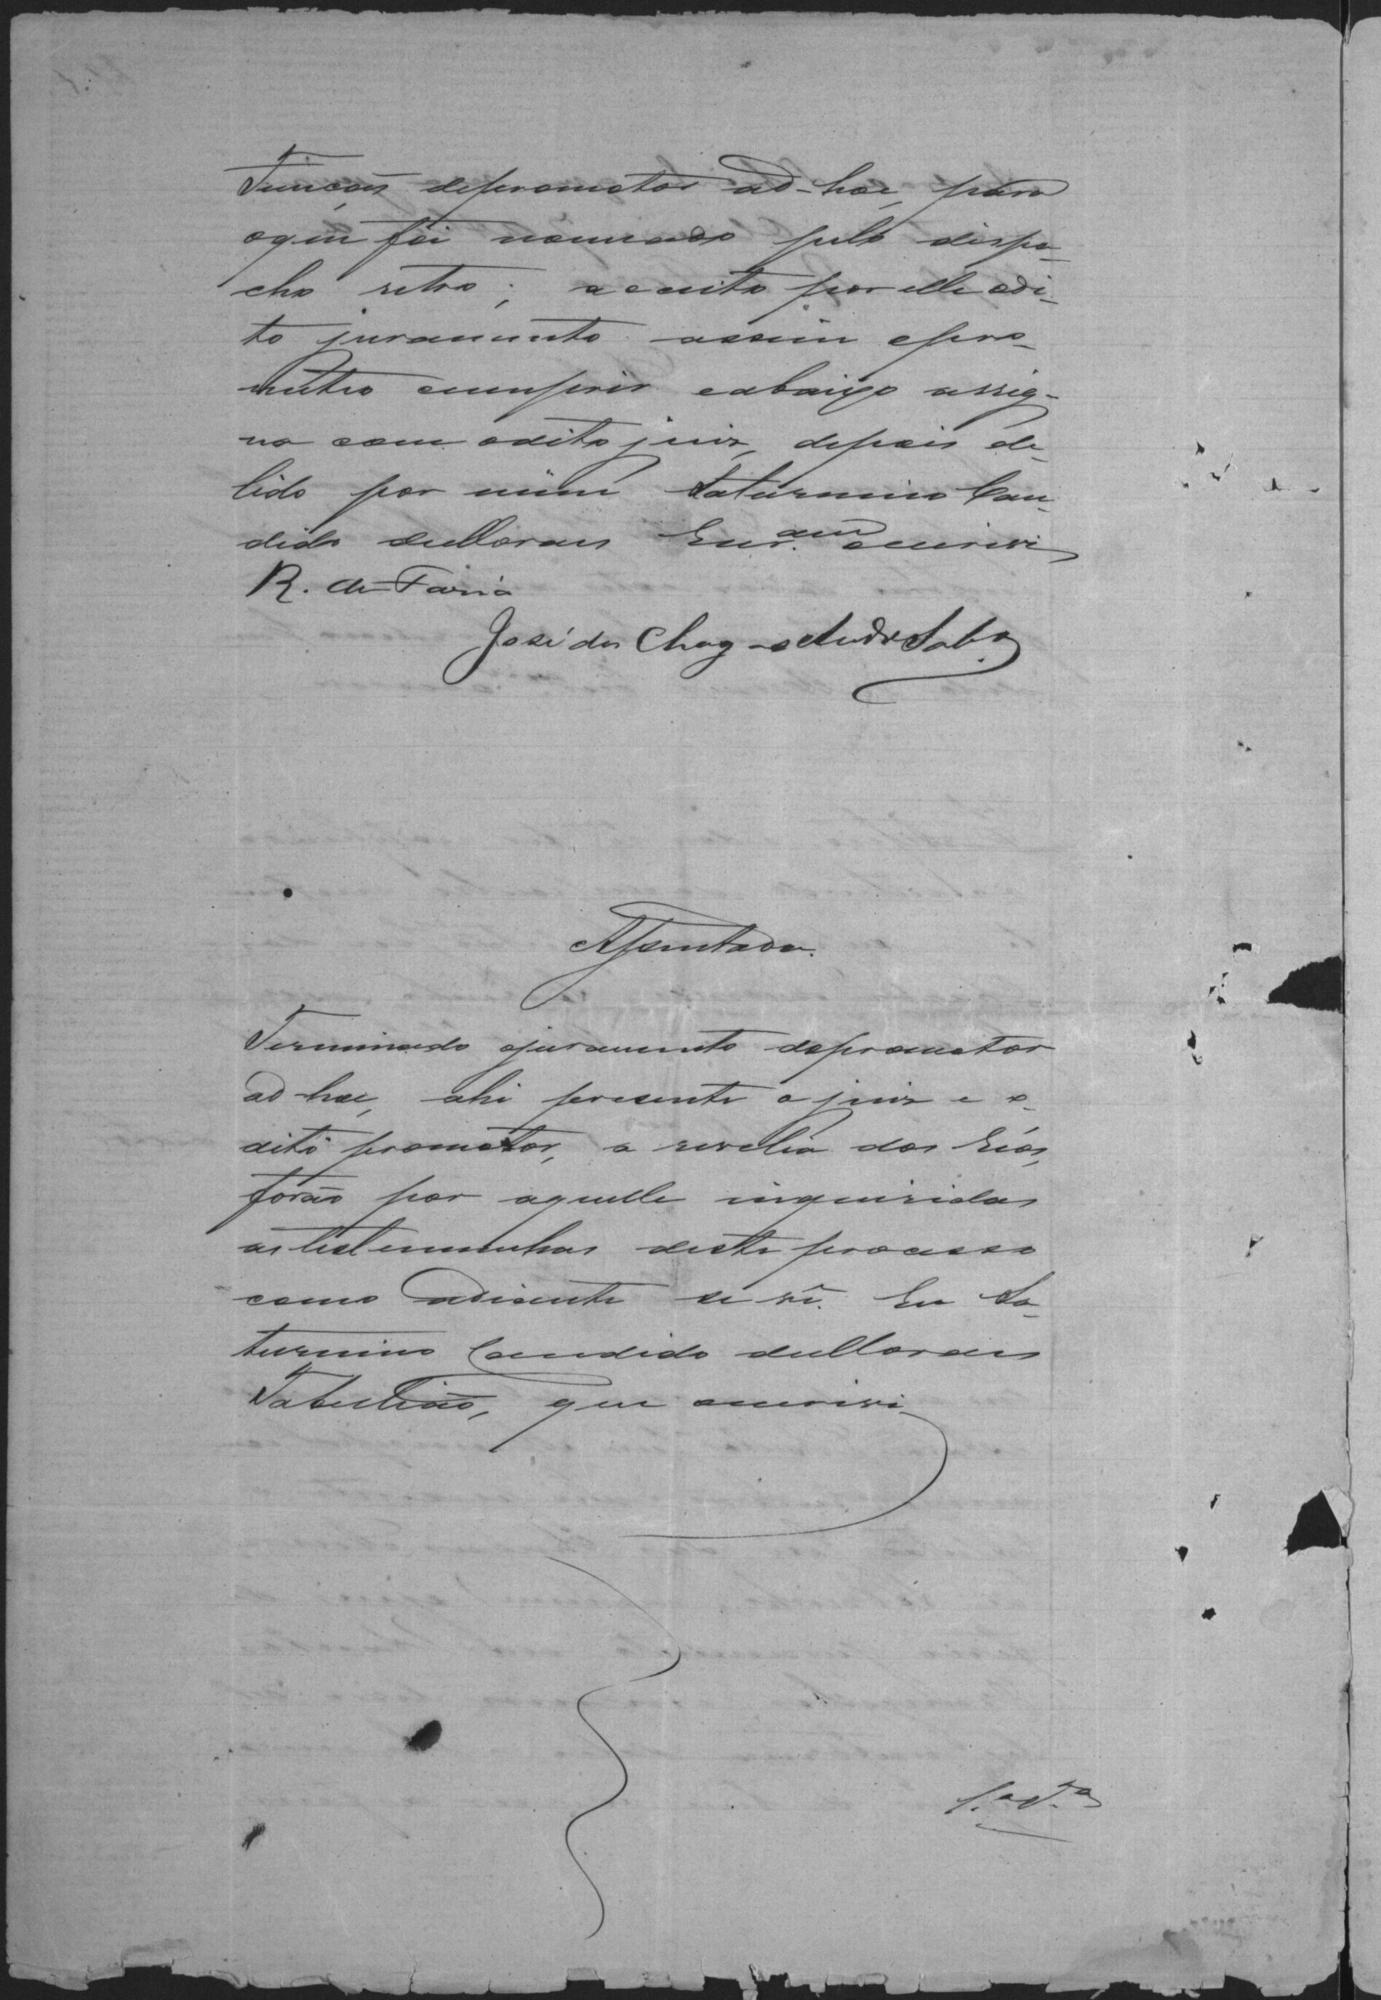 Funcções depromotor ad-hoc, para
oque foi nomeado pelo despa-
cho retro; acceito por elle odi-
to juramento assim opro-
metteo cumprir eabaixo assig-
na com odito juiz, depois de
lido por mim Saturnino Can-
dido deMoraes Escr.am oescrivi
R. de Faria
José das Chagas
Assentada.
Terminado ojuramento dopromotor
ad-hoc, ahi presente o juiz e o
dito promotor, a revelia dos Réos,
forão por aquelle inqueridas
as testemunhas deste processo
como adiante se vê. Eu Sa-
turnino Candido deMoraes
Tabellião, que oescrivi
1.ª T.ª